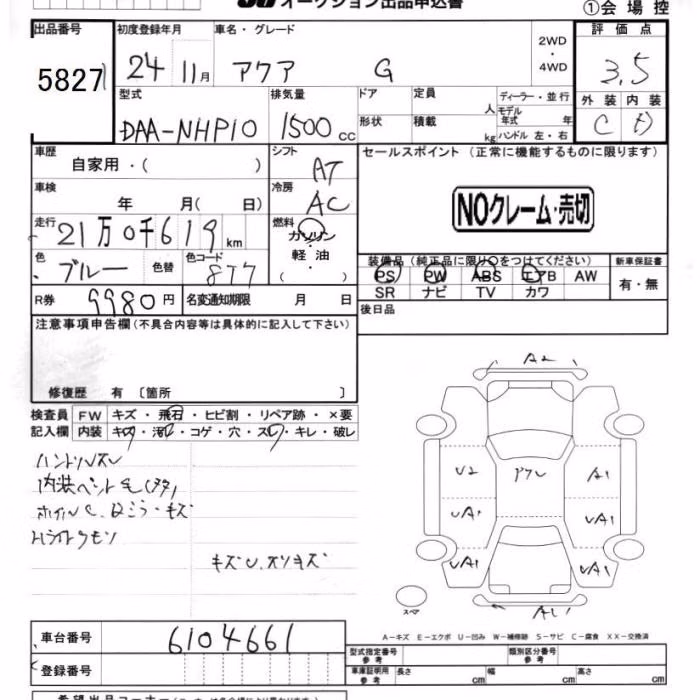 オークション出品申込書
①会場控
出品番号 初度登録年月 車名・グレード 評価点
5827 24 11月 アクア G 2WD・4WD 3.5
型式 排気量 ドア 定員 人 ディーラー・並行 外装 内装
DAA-NHP10 1500cc 形状 積載 kg モデル年式 年 C D
ハンドル 左・右
車歴 自家用・( ) シフト AT セールスポイント(正常に機能するものに限ります)
車検 年 月( 日) 冷房 AC
NOクレーム・売切
走行 21万0千619km 燃料 ガソリン・軽油・( )
色 ブルー 色替 色コード 8T7
装備品(純正品に限り○をつけてください) 新車保証書
PS PW ABS エアB AW 有・無
SR ナビ TV カワ
R券 9980円 名変通知期限 月 日
後日品
注意事項申告欄(不具合内容等は具体的に記入して下さい)
修復歴 有 〔箇所 〕
検査員 FW キズ・飛石・ヒビ割・リペア跡・×要
記入欄 内装 キズ・汚レ・コゲ・穴・スレ・キレ・破レ
ハンドルスレ
キズU.スリキズ
A2
U2 アワレ A1
UA1 UA1
UA1 UA1
スペア
A-キズ E-エクボ U-凹み W-補修跡 S-サビ C-腐食 XX-交換済
車台番号 6104661
型式指定番号 参考 類別区分番号 参考
登録番号
車庫証明用 参考 長さ cm 幅 cm 高さ cm